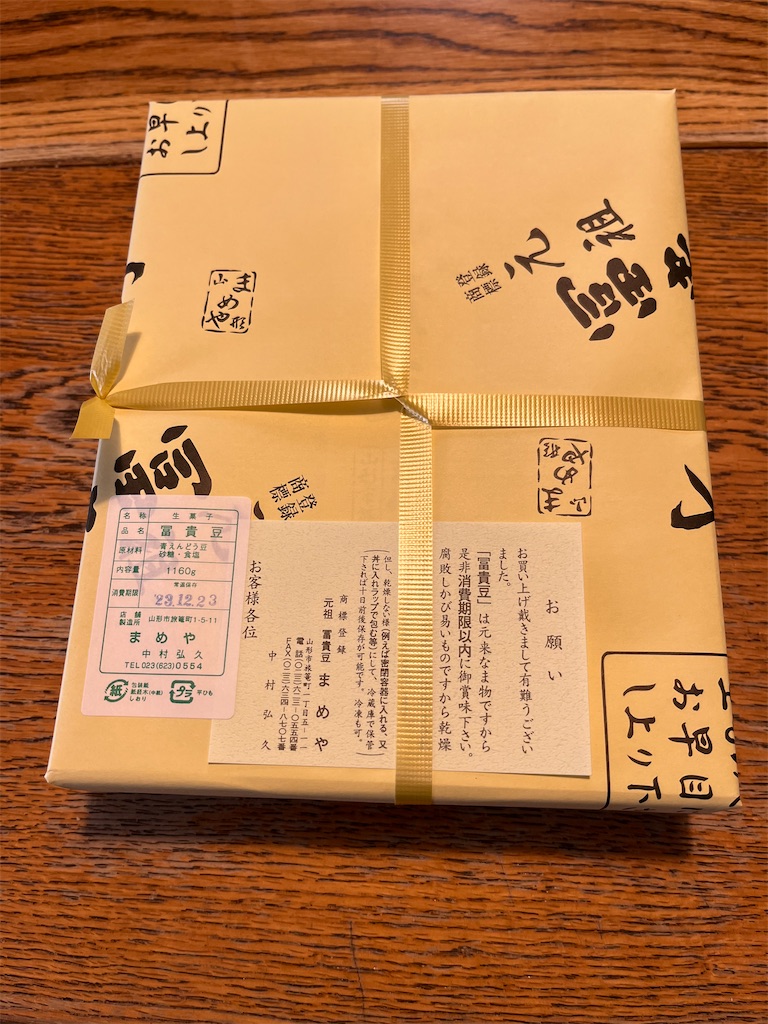 お早
しより
山形
まめや
登録
商標
元祖
富貴
登録
商標
富
山形
まめや
名称 生菓子
品名 冨貴豆
原材料 青えんどう豆
砂糖・食塩
内容量 1160g
常温保存
消費期限 23.12.23
店舗
製造所 山形市旅篭町1-5-11
まめや
中村弘久
TEL023(623)0554
紙 包装紙
紙経木(小紙)
しおり
プラ 平ひも
お願い
お買い上げ戴きまして有難うござい
ました。
「冨貴豆」は元来なま物ですから
是非消費期限以内に御賞味下さい。
腐敗しかび易いものですから乾燥
(但し、乾燥しない様(例えば密閉容器に入れる、又
丼に入れラップで包む等)にして、冷蔵庫で保管
下されば十日前後保存が可能です。冷凍も可。
商標登録
元祖 冨貴豆 まめや
山形市旅篭町一丁目五−一一
電話〇二三(六二三)−〇五五四番
FAX〇二三(六三四)−八七〇七番
中村弘久
お客様各位
お早目
しより下